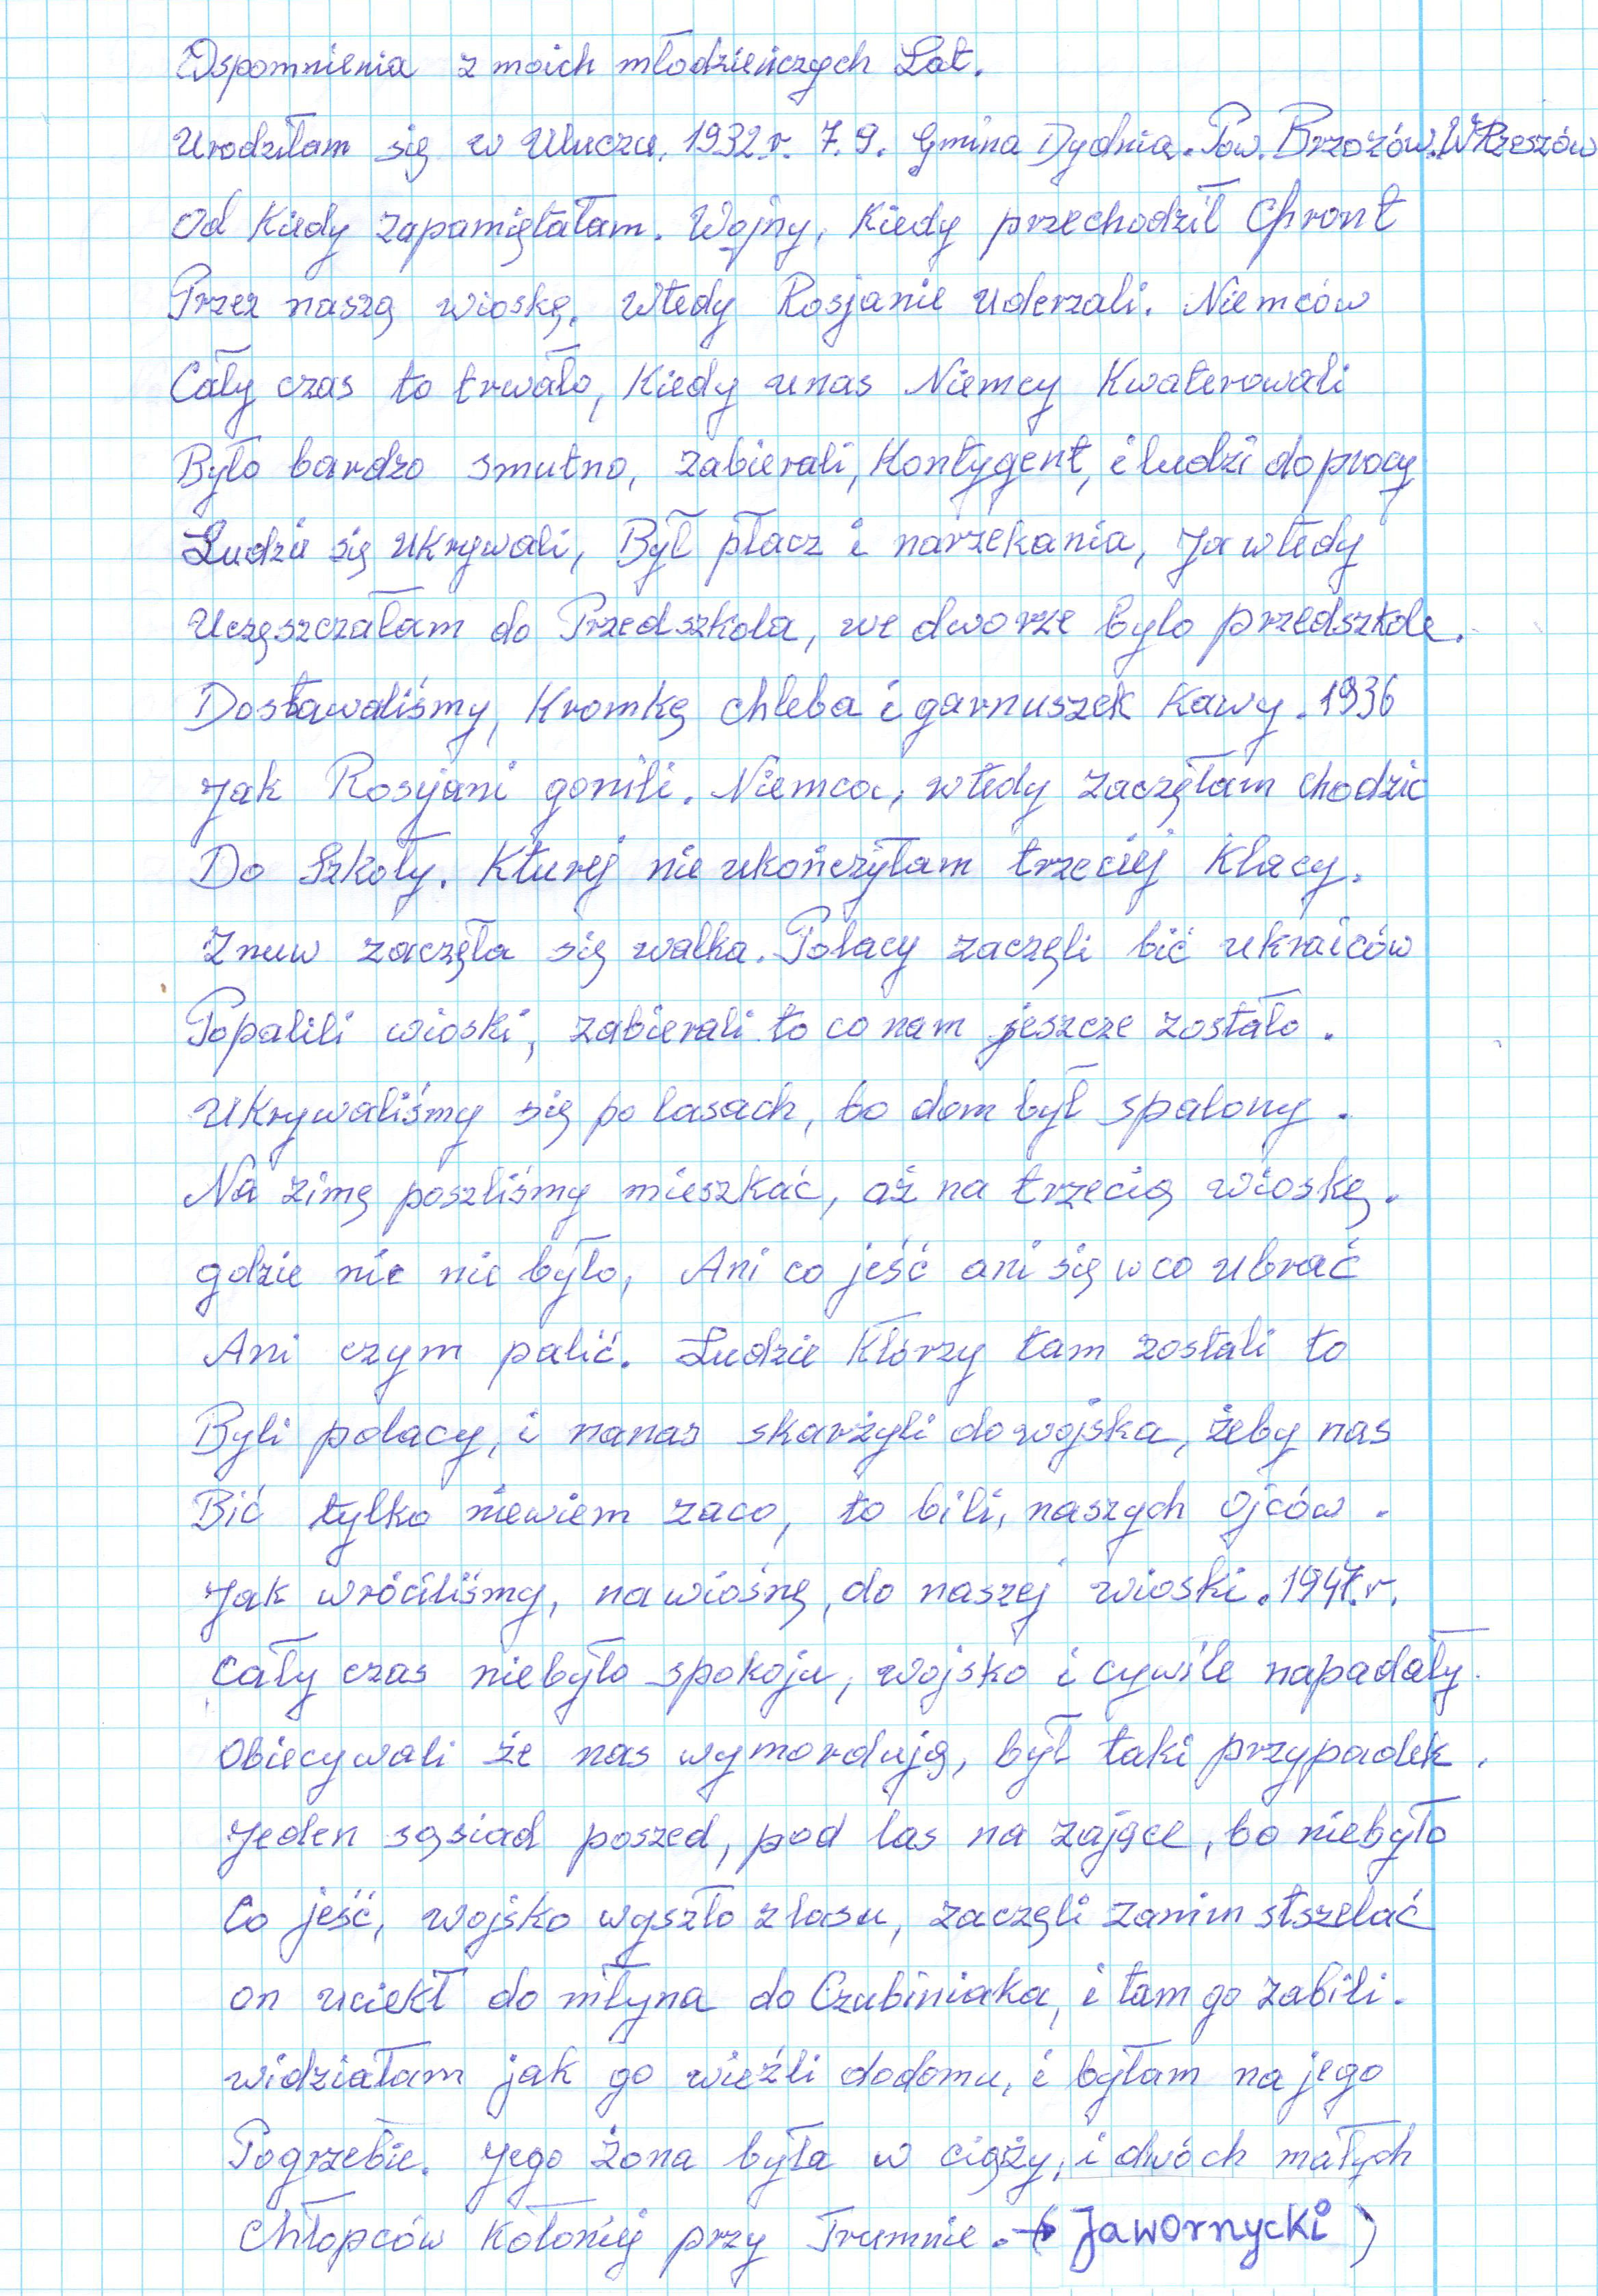 Wspomnienia z moich młodzieńczych Lat.
Urodziłam się w Uluczu. 1932r. 7. 9. Gmina Dydnia. Pow. Brzozów. W Rzeszów
Od Kiedy zapamiętałam. Wojny, Kiedy przechodził Chront
Przez naszą wioskę. Wtedy Rosjanie uderzali. Niemców
Cały czas to trwało, Kiedy unas Niemcy Kwaterowali
Było bardzo smutno, zabierali, Kontygent, i ludzi do pracy
Ludzie się ukrywali, Był płacz i narzekania, Ja wtedy
Uczęszczałam do Przedszkola, we dworze bylo przedszkole.
Dostawaliśmy, Kromkę chleba i garnuszek Kawy. 1936
Jak Rosyjani gonili. Niemca, wtedy zaczęłam chodzic
Do Szkoły. Kturej nie ukończyłam trzeciej Klacy.
Znuw zaczęła się walka. Polacy zaczęli bić ukraiców
Popalili wioski, zabierali to co nam jeszcze zostało.
Ukrywaliśmy się po lasach, bo dom był spalony.
Na zimę poszliśmy mieszkać, aż na trzecią wioskę.
gdzie nic nie było, Ani co jeść ani się w co ubrać
Ani czym palić. Ludzie Którzy tam zostali to
Byli polacy, i nanas skarżyli do wojska, żeby nas
Bić tylko niewiem zaco, to bili, naszych Ojców.
Jak wróciliśmy, na wiosnę, do naszej wioski. 1947.r.
Cały czas niebyło spokoju, wojsko i cywile napadały.
Obiecywali że nas wymordują, był taki przypadek.
Jeden sąsiad poszed, pod las na zające, bo niebyło
Co jeść, wojsko wyszło z lasu, zaczęli zanim stszelać
on uciekł do młyna do Czubiniaka, i tam go zabili.
widziałam jak go wieźli dodomu, i byłam na jego
Pogrzebie. Jego żona była w ciąży, i dwóch małych
Chłopców Kołoniej przy Trumnie. → ( Jawornycki )